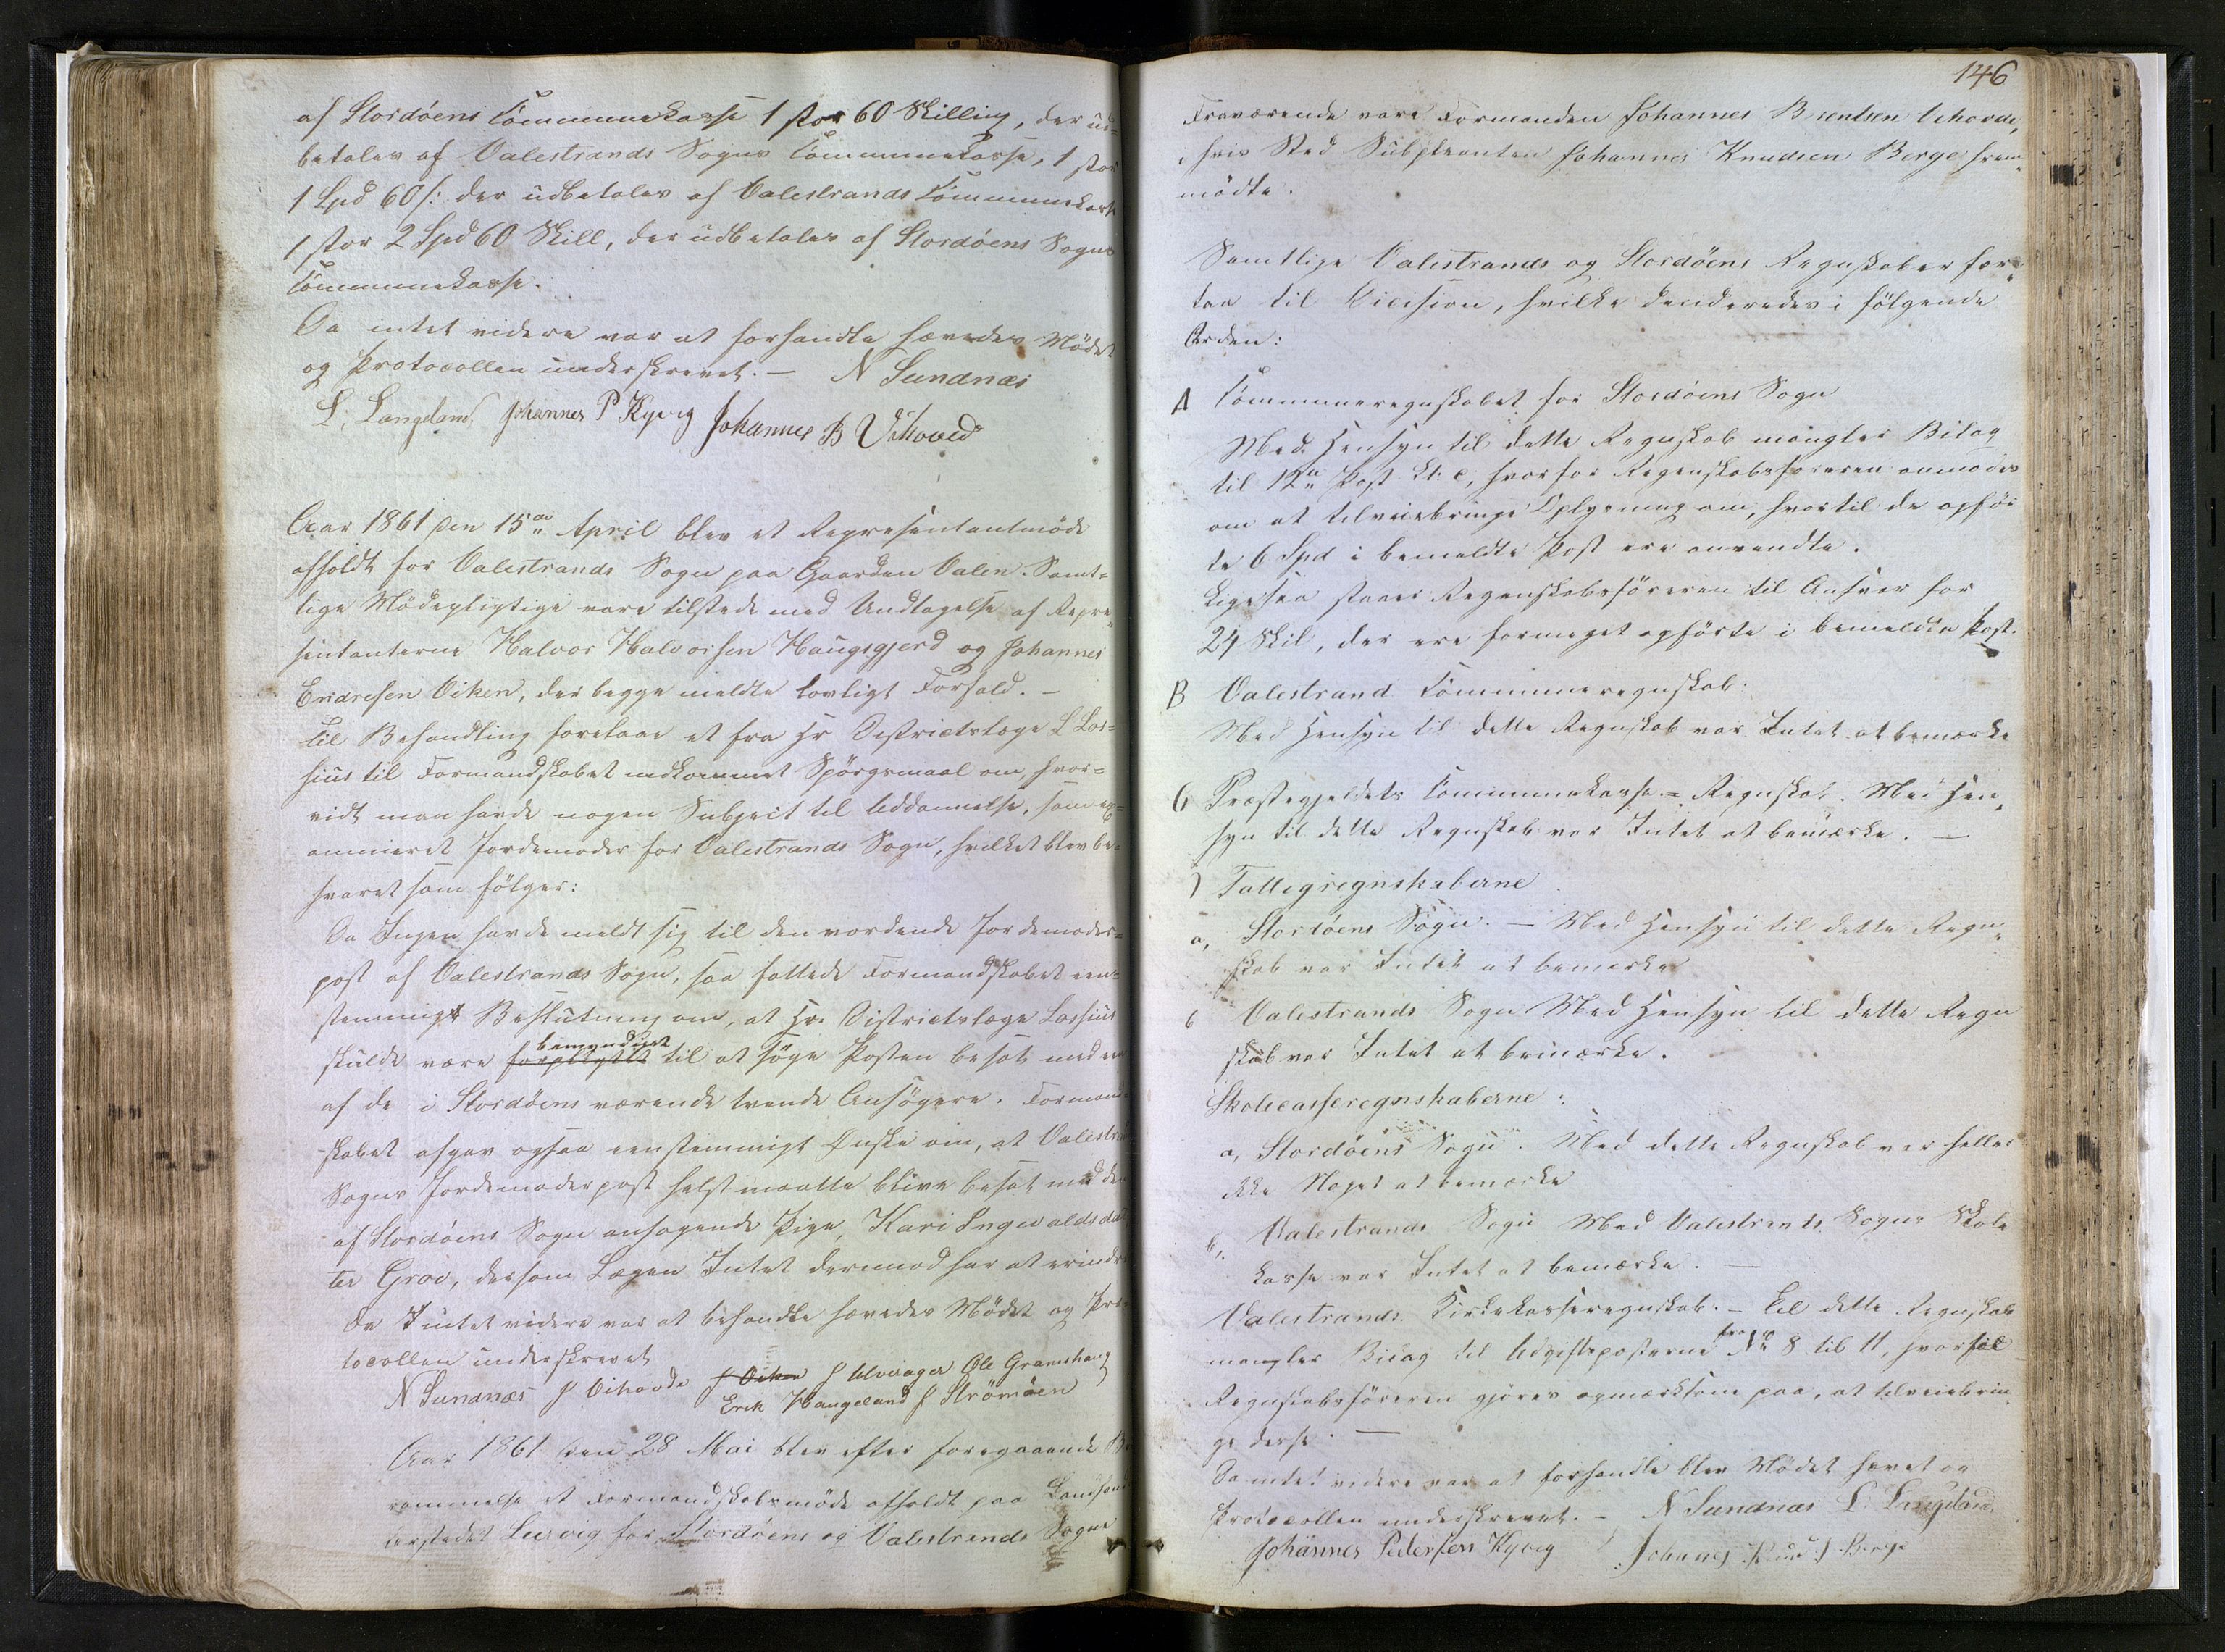 af Stordöens Communekasse 1 stor 60 Skilling, der ud-
betales af Valestrands Sogns Communekasse, 1 stor
1 Spd 60 s: der udbetales af Valestrands Communekasse
1 stor 2 Spd 60 Skill, der udbetales af Stordöens Sogns
Communekasse.
Da intet videre var at forhandle hævedes Mödet
og Protocollen underskrevet. — N Sundnæs
L. Langeland Johannes P Kyvig Johannes B Vihoved
Aar 1861 den 15de April blev et Repræsentantmöde
afholdt for Valestrands Sogn paa Gaarden Valen. Samt=
lige Mödepligtige vare tilstede med Undtagelse af Repræ
sentanterne Halvor Halvorsen Haugsgjerd og Johannes
Endresen Viken, der begge meldte lovligt Forfald. —
Til Behandling foretages et fra Hr Districtslæge L Los=
sius til Formandskabet indkommet Spörgsmaal om, hvor=
vidt man havde nogen Subject til Uddannelse, som ex=
amineret Jordemoder for Valestrands Sogn, hvilket blev be
svaret som fölger:
Da Ingen havde meldt sig til den vordende Jordemoder=
post af Valestrands Sogn, saa fattede Formandskabet een=
stemmigt Beslutning om, at Hr. Districtslæge Lossius
bemyndiget
skulde være forpligtet til at söge Posten besat med en
af de i Stordöens værende tvende Ansögere. Formand
skabet afgav ogsaa eenstemmigt Önske om, at Valestrands
Sogns Jordemoderpost helst maatte blive besat med den
af Stordöens Sogn ansögende Pige, Kari Ingevaldsdat
ter Grov, dersom Lægen Intet derimod har at erindre
Da Intet videre var at behandle hævedes Mödet og Pro
tocollen underskrevet
N Sundnæs J Vihovde J Viken J Ulveragen Ole Gramshaug
Erik Haugeland J Strömöen
Aar 1861 den 28 Mai blev efter foregaaende Be
rammelse et Formandskabsmöde afholdt paa Landhand
lerstedet Lervig for Stordöens og Valestrands Sogne
146
Fraværende vare Formanden Johannes Berentsen Vehovde,
i hvis Sted Suppleanten Johannes Knudsen Berge frem
mödte.
Samtlige Valestrands og Stordöens Regnskaber fore
taa til Decision, hvilke decideredes i fölgende
Orden:
A Communeregnskabet for Stordöens Sogn
Med Hensyn til dette Regnskab mangler Bilag
til 12te Post Lt: c, hvorfor Regenskabsföreren anmodes
om at tilveiebringe Oplysning om, hvortil de opför
te 6 Spd i bemeldte Post ere anvendte.
Ligesaa staaer Regenskabsföreren til Ansvar for
24 Skil, der ere formeget opförte i bemeldte Post.
B Valestrand Communeregnskab.
Med Hensyn til dette Regnskab var Intet at bemærke
C Præstegjeldets Communekasse= Regnskab. Med Hen
syn til dette Regnskab var Intet at bemærke. —
D Fattigregnskaberne
a, Stordöens Sogn. — Med Hensyn til dette Regn
skab var Intet at bemærke
b Valestrands Sogn Med Hensyn til dette Regn
skab var Intet at bemærke.
Skolecasseregnskaberne:
a, Stordöens Sogn. Med dette Regnskab var heller
ikke Noget at bemærke
b, Valestrands Sogn Med Valestrands Sogns Skole
kasse var Intet at bemærke. —
Valestrands Kirkekasseregnskab. — Til dette Regnskab
mangler Bilag til Udgiftsposterne fra No 8 til 11, hvortil
Regnskabsföreren gjöres opmærksom paa, at tilveiebrin
ge disse. —
Da Intet videre var at forhandle blev Mödet hævet og
Protocollen underskrevet. — N Sundnæs L. Langeland
Johannes Pedersen Kyvig Johannes Knud S Berge